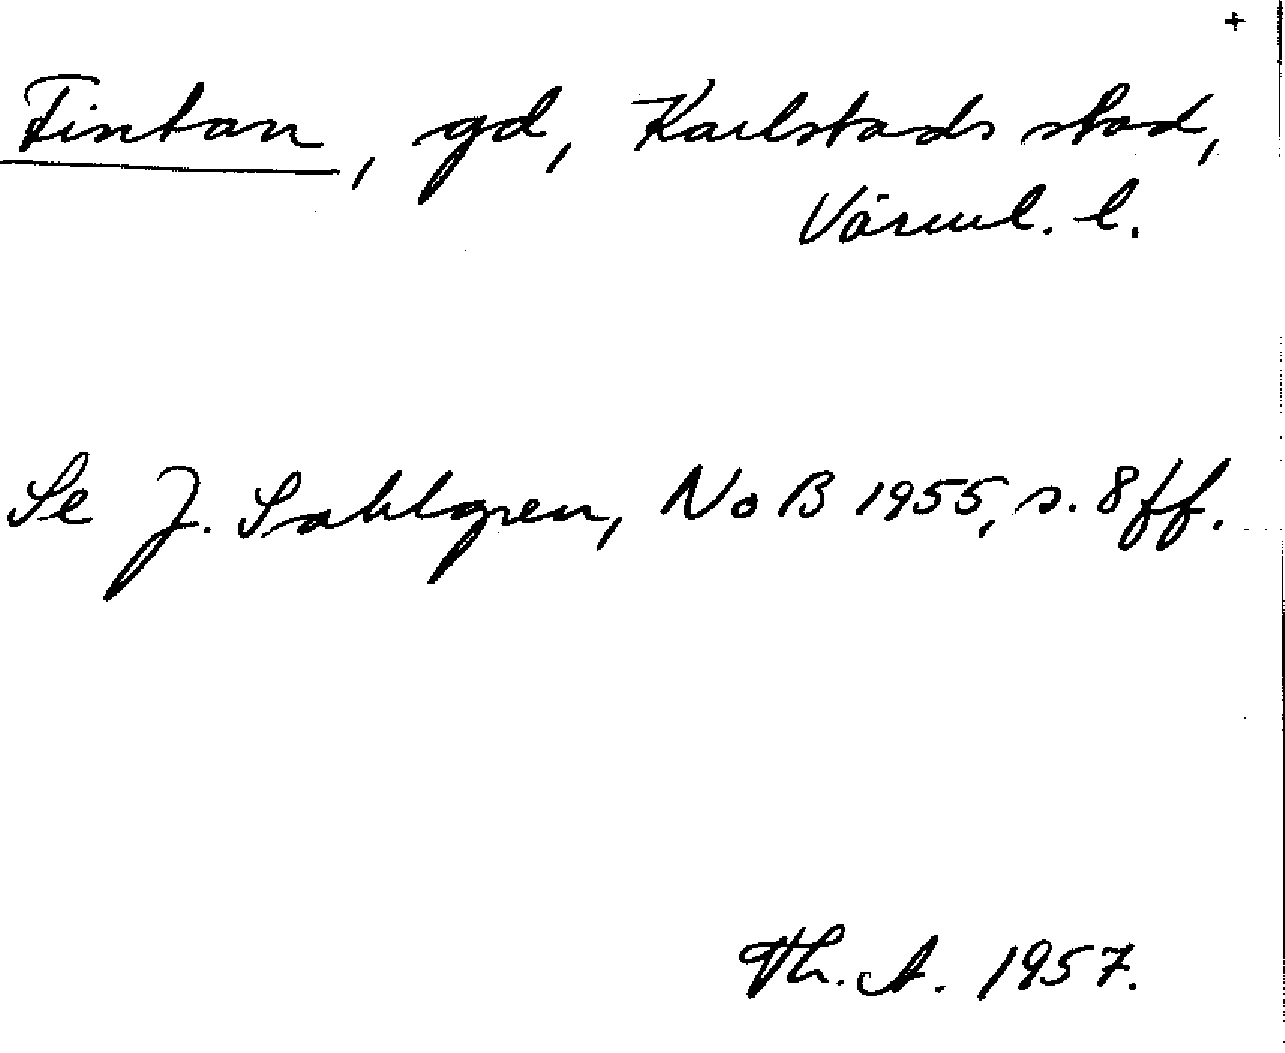 +
Fintan, gd, Karlstads stad,
Värml. l.
Se J. Sahlgren, NoB 1955, s. 8ff.
Th. A. 1957.